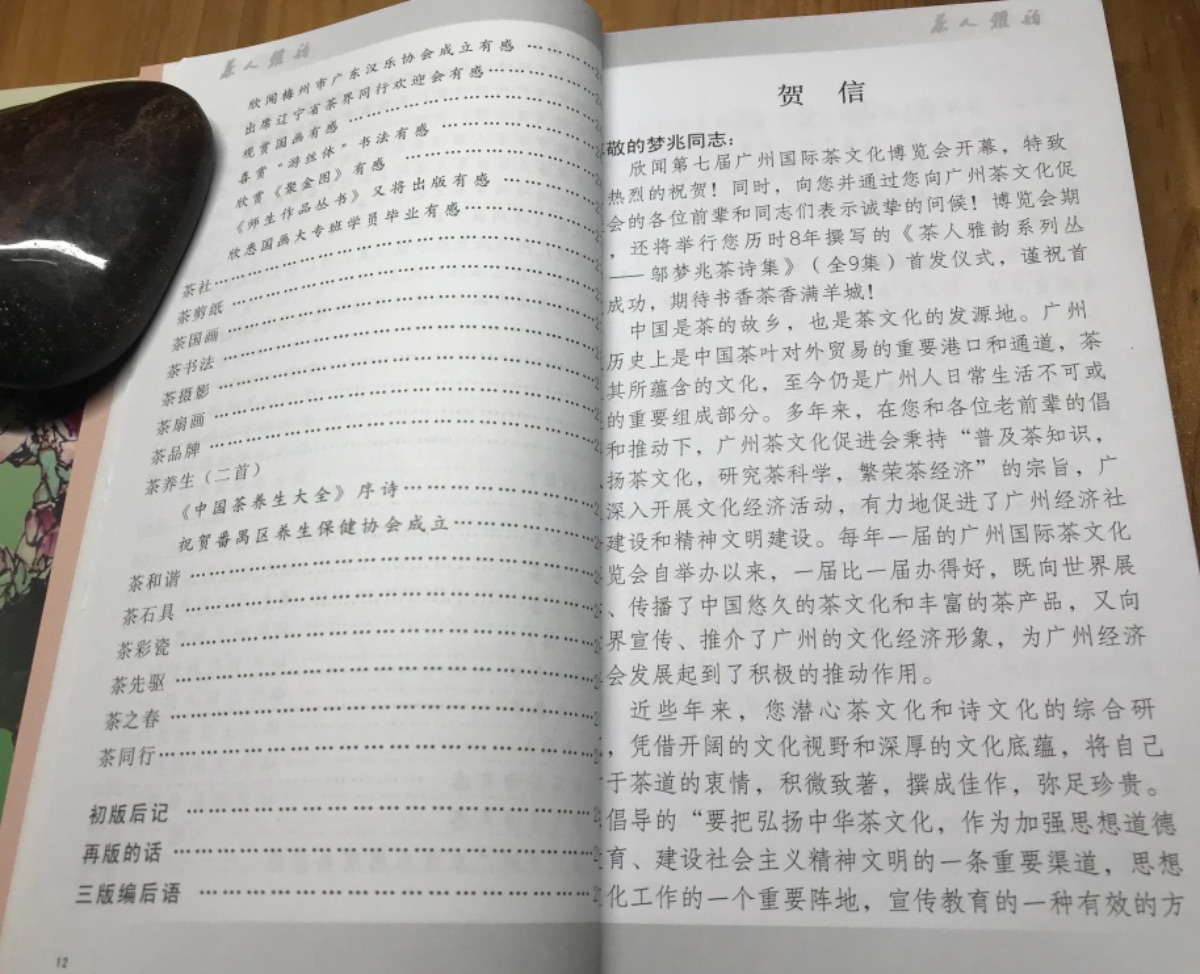 茶人雅韵
欣闻梅州市广东汉乐协会成立有感 ……………2
出席辽宁省茶界同行欢迎会有感……………2
观赏国画有感 ……………2
喜赏“游丝体”书法有感 ……………2
欣赏《聚金图》有感 ……………2
《师生作品丛书》又将出版有感 ……………2
欣悉国画大专班学员毕业有感……………2
茶社……………2
茶剪纸 ……………2
茶国画 ……………2
茶书法 ……………2
茶摄影 ……………2
茶扇画 ……………2
茶品牌 ……………2
茶养生（二首）
《中国茶养生大全》序诗……………2
祝贺番禺区养生保健协会成立……………2
茶和谐 ……………2
茶石具 ……………2
茶彩瓷 ……………2
茶先驱 ……………2
茶之春 ……………2
茶同行……………2
初版后记 ……………2
再版的话 ……………2
三版编后语 ……………2
12
茶人雅韵
贺 信
敬的梦兆同志：
欣闻第七届广州国际茶文化博览会开幕，特致
热烈的祝贺！同时，向您并通过您向广州茶文化促
会的各位前辈和同志们表示诚挚的问候！博览会期
，还将举行您历时8年撰写的《茶人雅韵系列丛
——邬梦兆茶诗集》（全9集）首发仪式，谨祝首
成功，期待书香茶香满羊城！
中国是茶的故乡，也是茶文化的发源地。广州
历史上是中国茶叶对外贸易的重要港口和通道，茶
其所蕴含的文化，至今仍是广州人日常生活不可或
的重要组成部分。多年来，在您和各位老前辈的倡
和推动下，广州茶文化促进会秉持“普及茶知识，
扬茶文化，研究茶科学，繁荣茶经济”的宗旨，广
深入开展文化经济活动，有力地促进了广州经济社
建设和精神文明建设。每年一届的广州国际茶文化
览会自举办以来，一届比一届办得好，既向世界展
、传播了中国悠久的茶文化和丰富的茶产品，又向
界宣传、推介了广州的文化经济形象，为广州经济
会发展起到了积极的推动作用。
近些年来，您潜心茶文化和诗文化的综合研
，凭借开阔的文化视野和深厚的文化底蕴，将自己
于茶道的衷情，积微致著，撰成佳作，弥足珍贵。
倡导的“要把弘扬中华茶文化，作为加强思想道德
育、建设社会主义精神文明的一条重要渠道，思想
化工作的一个重要阵地，宣传教育的一种有效的方